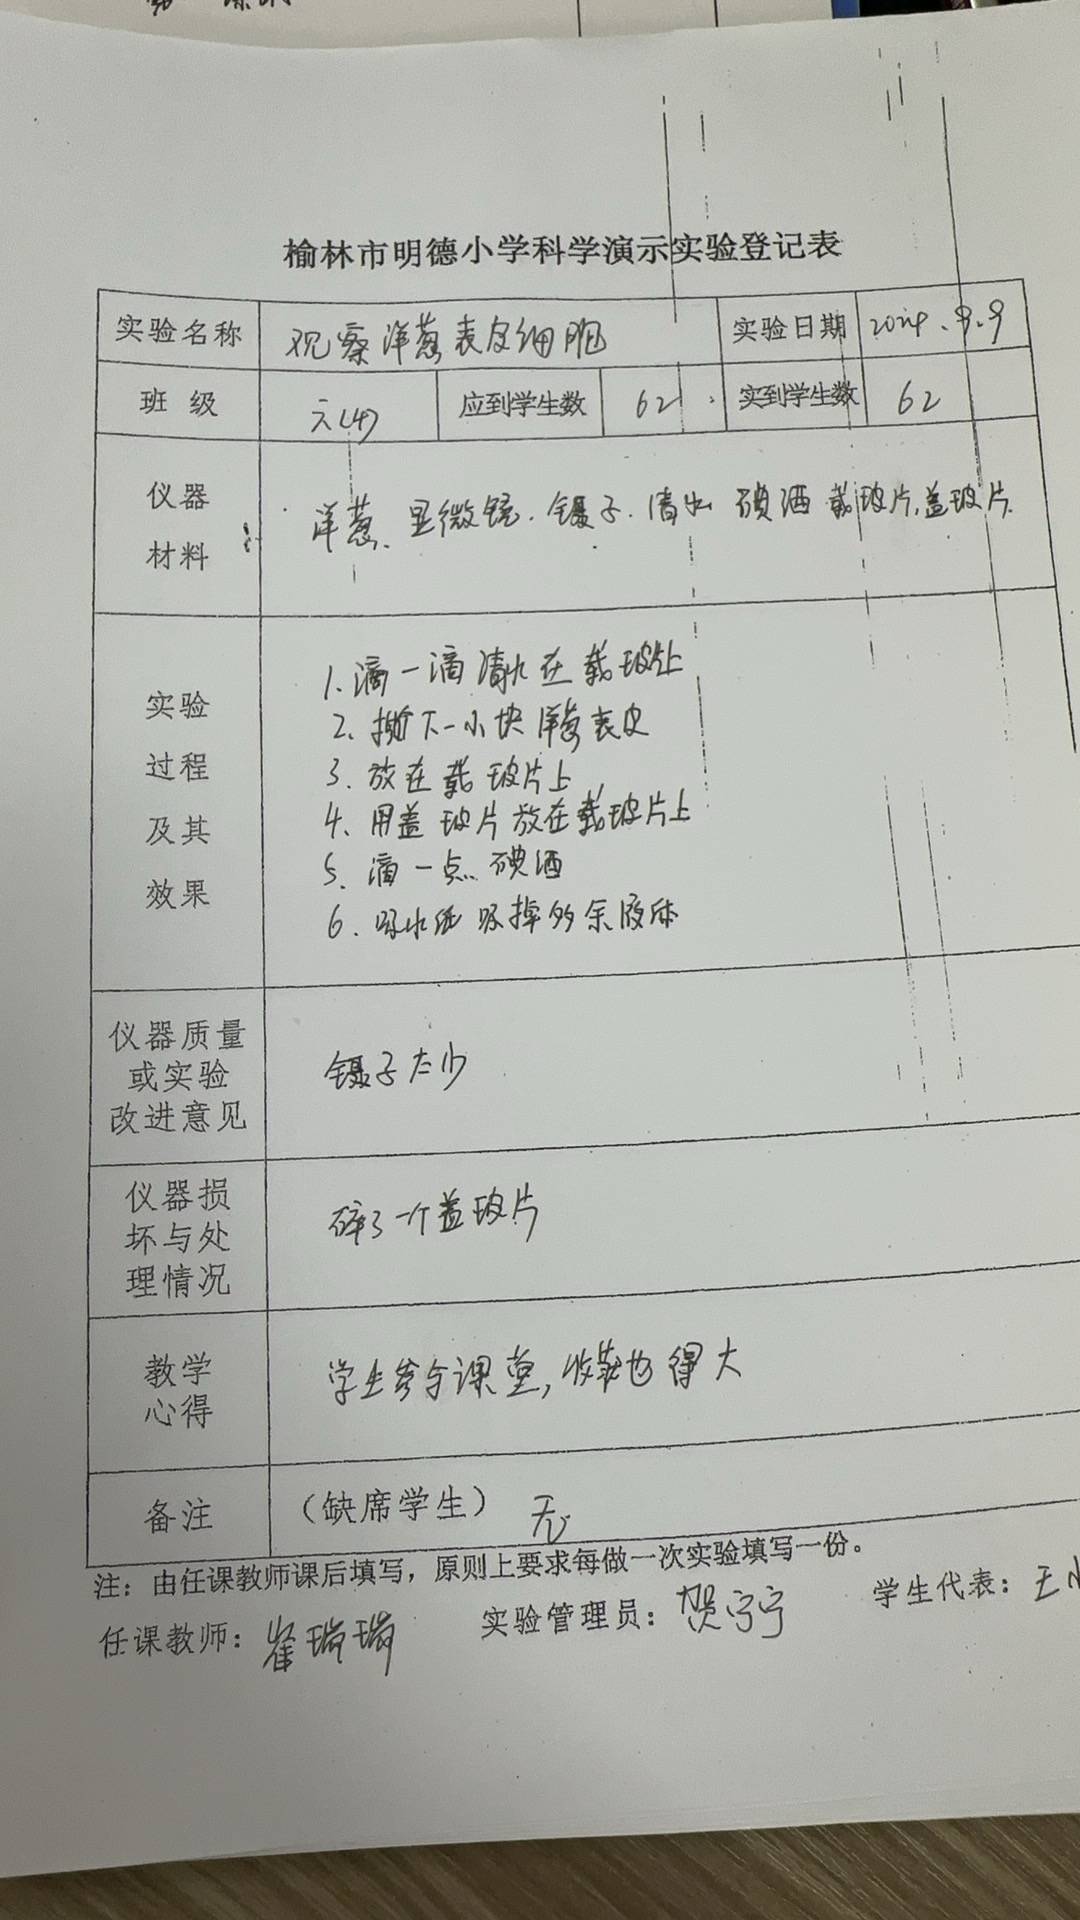 榆林市明德小学科学演示实验登记表
实验名称 观察洋葱表皮细胞 实验日期 2024.9.9
班级 六(4) 应到学生数 62 实到学生数 62
仪器
材料
洋葱、显微镜、镊子、清水 碘酒 载玻片、盖玻片
实验
过程
及其
效果
1、滴一滴清水在载玻片上
2、撕下一小块洋葱表皮
3、放在载玻片上
4、用盖玻片放在载玻片上
5、滴一点碘酒
6、吸水纸吸掉多余液体
仪器质量
或实验
改进意见
镊子太少
仪器损
坏与处
理情况
碎了一个盖玻片
教学
心得
学生参与课堂,收获也得大
备注 (缺席学生) 无
注：由任课教师课后填写，原则上要求每做一次实验填写一份。
任课教师：崔瑞瑞 实验管理员：贺宁宁 学生代表：王